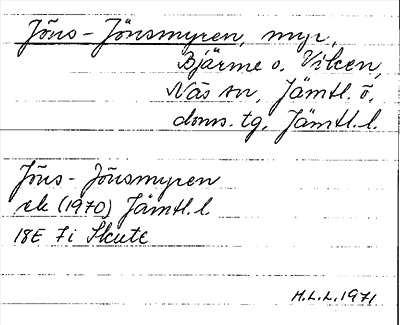 Jöns-Jönsmyren, myr,
Bjärme o. Viken,
Näs sn, Jämtl. ö.
doms. tg, Jämtl. l.
Jöns-Jönsmyren
ek (1970) Jämtl. l
18E 7i Skute
H.L.L. 1971